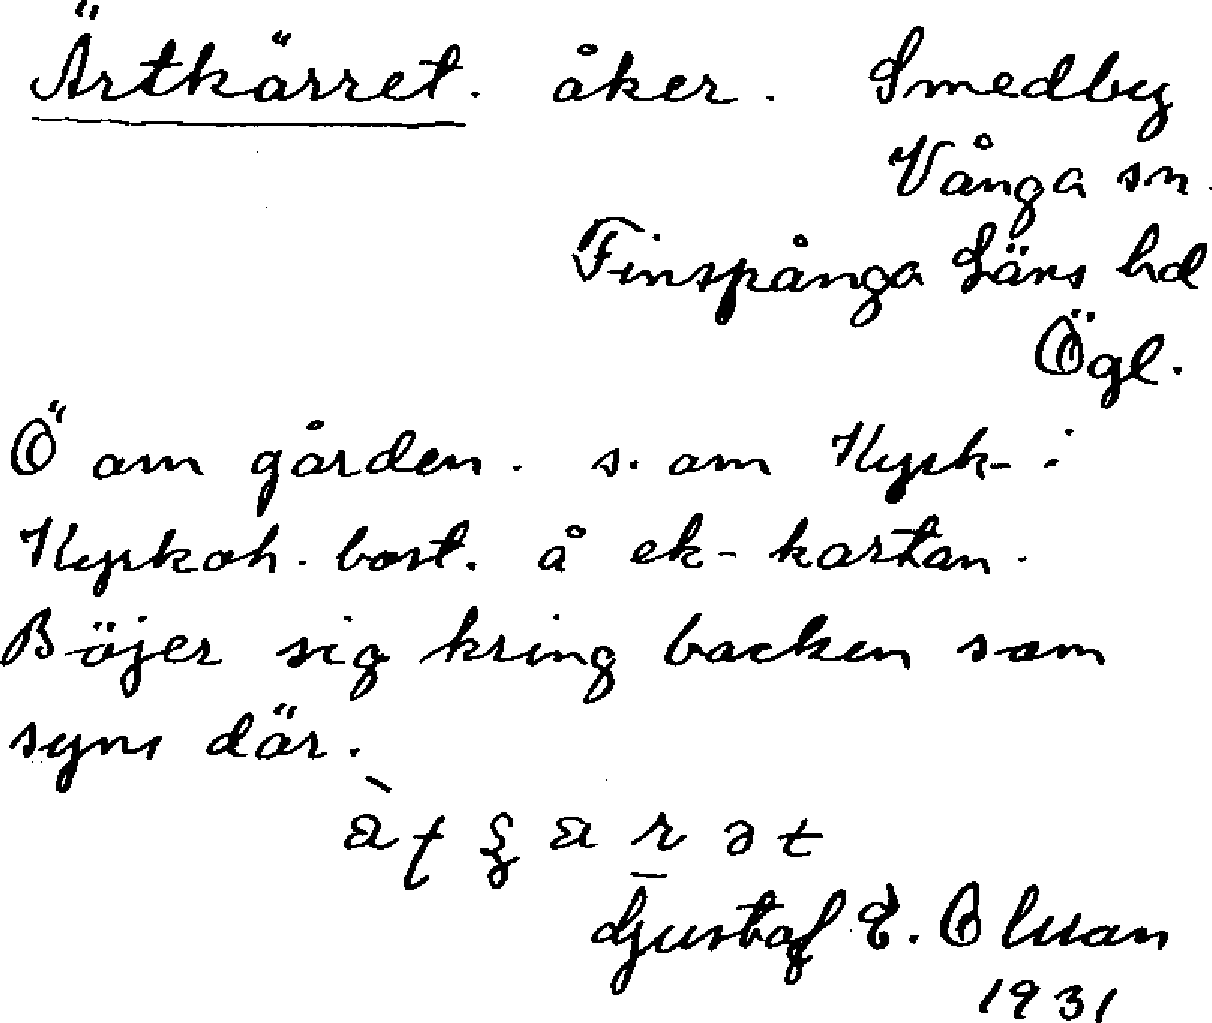 Ärtkärret. åker. Smedby
Vånga sn.
Finspånga Läns hd
Ögl.
Ö om gården. s. om Kyrk- i
Kyrkoh. bost. å ek-kartan.
Böjer sig kring backen som
syns där.
Gustaf E. Olsson
1931